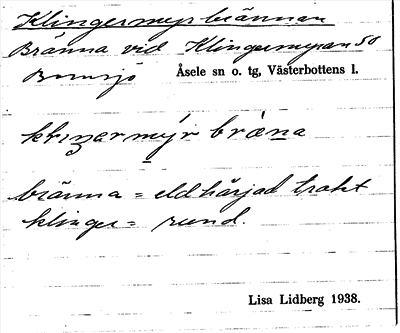 Klingermyrbrännan
Bränna vid Klingermyran SO
Bomsjö Åsele sn o. tg, Västerbottens l.
klıŋar mýr bræna
bränna = eldhärjad trakt
klinger = rund.
Lisa Lidberg 1938.